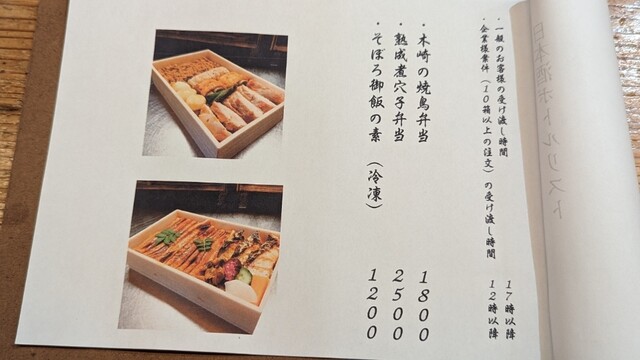 ・一般のお客様の受け渡し時間 17時以降
・企業様案件(10箱以上の注文)の受け渡し時間 12時以降
・木崎の焼鳥弁当 1800
・熟成煮穴子弁当 2500
・そぼろ御飯の素 (冷凍) 1200
日本酒ボトルリスト